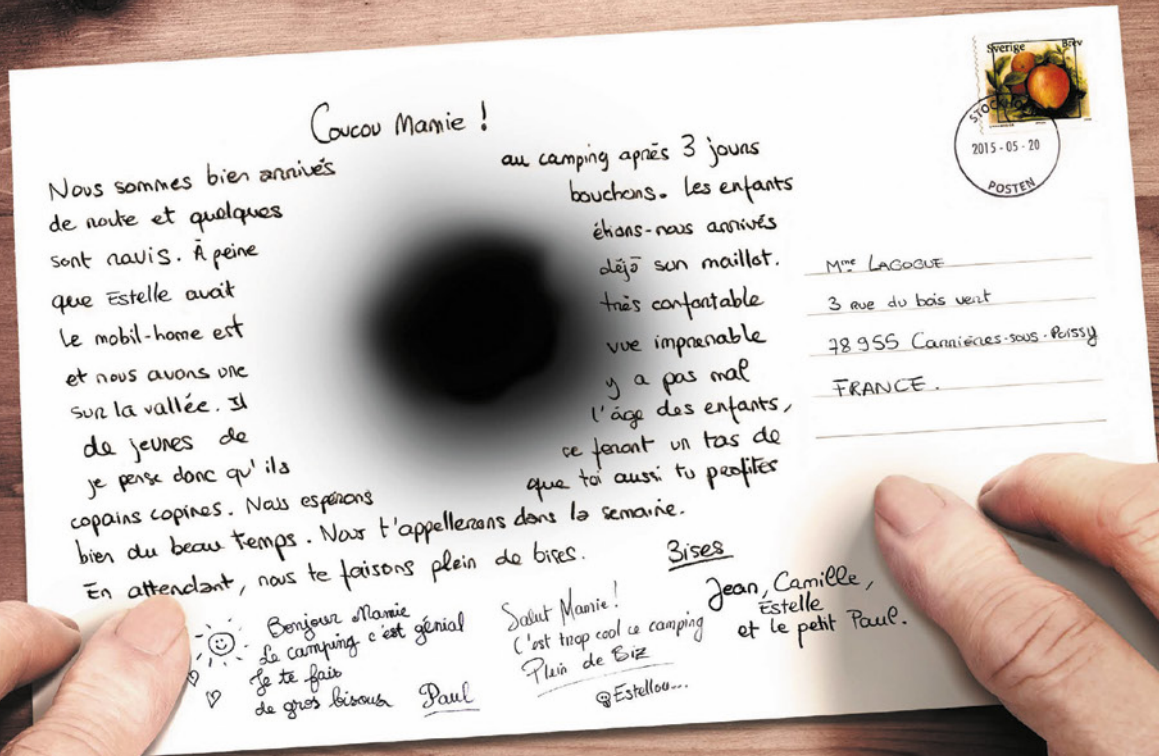 Coucou Mamie !
Nous sommes bien arrivés au camping après 3 jours
de route et quelques bouchons. Les enfants
sont ravis. À peine étions-nous arrivés
que Estelle avait déjà son maillot.
Le mobil-home est très confortable
et nous avons une vue imprenable
sur la vallée. Il y a pas mal
de jeunes de l'âge des enfants,
je pense donc qu'ils ce feront un tas de
copains copines. Nous espérons que toi aussi tu profites
bien du beau temps. Nous t'appellerons dans la semaine.
En attendant, nous te faisons plein de bises.
Bises
Jean, Camille,
Estelle
et le petit Paul.
Bonjour Mamie
Le camping c'est génial
Je te fais
de gros bisous Paul
Salut Mamie !
C'est trop cool ce camping
Plein de Biz
Estellou...
Sverige Brev
STOCKHOLM
2015-05-20
POSTEN
Mme LAGOGUE
3 rue du bois vert
78955 Carrières-sous-Poissy
FRANCE.